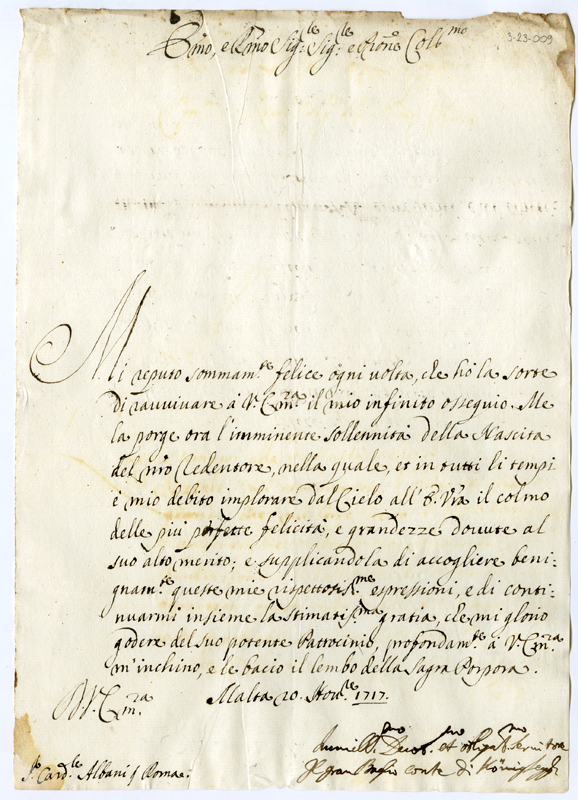 Emo, e Rmo Sig.re Sig.re e Pron̄e Coll.mo
3-23-009
Mi reputo sommam.te felice ogni volta, che hò la sorte
di ravvivare à V. Em.ra il mio infinito ossequio. Me
la porge ora l'imminente sollennità della Nascita
del nr̄o Redentore, nella quale, et in tutti li tempi
è mio debito implorare dal Cielo all' E. Vr̄a il colmo
delle più perfette felicità, e grandezze dovute al
suo alto merito; e supplicandola di accogliere beni-
gnam.te queste mie rispettosis.me espressioni, e di conti-
nuarmi insieme la stimatis.ma gratia, che mi glorio
godere del suo potente Patrocinio, profondam.te à V. Em.ra
m'inchino, e le bacio il lembo della Sagra Porpora.
D V. Em.ra Malta 20. Nov.re 1717.
Humill.mo Devot.mo et obligat.mo servitore
S.r Card.le Albani p Roma.
Il gran Baglio conte di Königsegg